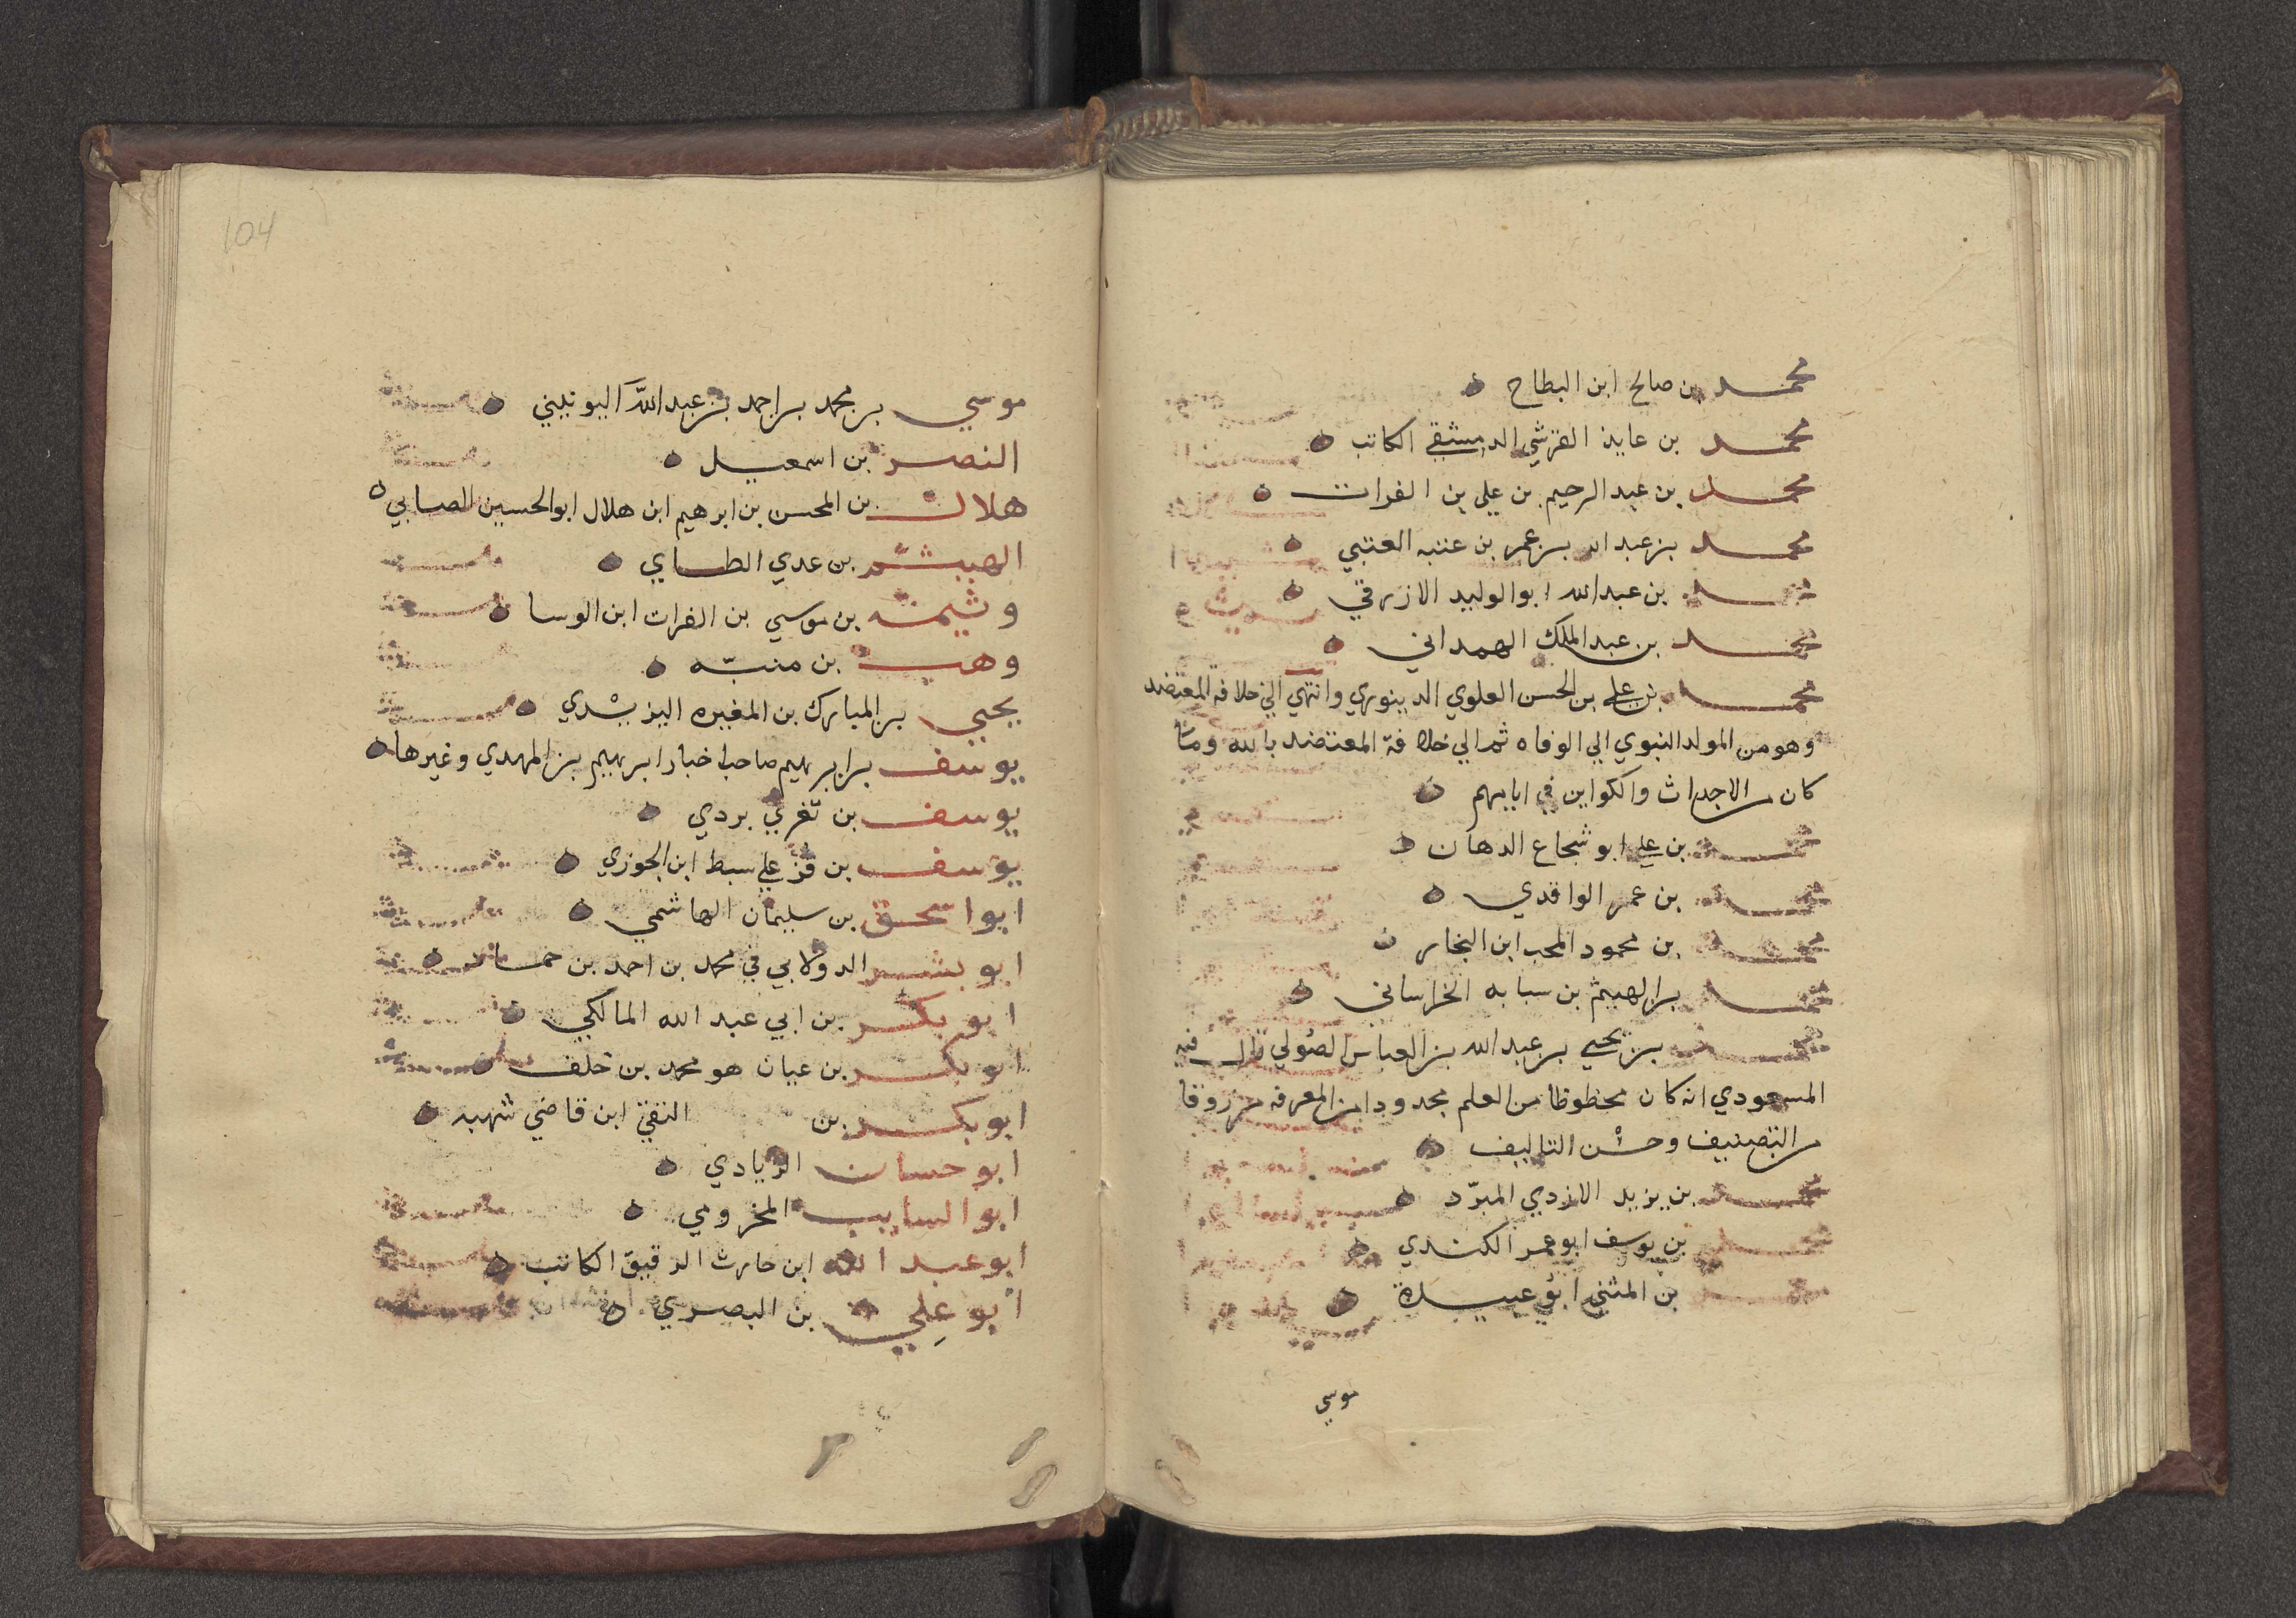 محمد بن صالح ابن البطاح
محمد بن عايذ القرشي الدمشقي الكاتب
محمد بن عبد الرحيم بن علي بن الفرات
محمد بن عبد الله بن عمر بن عتبه العتبي
محمد بن عبد الله ابو الوليد الازرقي
محمد بن عبد الملك الهمداني
محمد بن علي بن الحسن العلوي الدينوري وانتهي الي خلافة المعتضد
وهو من المولد النبوي الي الوفاه ثم الي خلافة المعتضد بالله وما
كان من الاحداث والكواين في ايامهم
محمد بن علي ابو شجاع الدهان
محمد بن عمر الواقدي
محمد بن محمود المحب ابن النجار
محمد بن الهيثم بن سبابه الخراساني
محمد بن يحيي بن عبد الله بن العباس الصولي قال فيه
المسعودي انه كان محظوظا من العلم مجدودا من المعرفه مرزوقا
من التصنيف وحسن التاليف
محمد بن يزيد الازدي المبرّد
محمد بن يوسف ابو عمر الكندي
بن المثني ابو عبيدة
موسي
104
موسي بن محمد بن احمد بن عبد الله اليونيني
النصر بن اسمعيل
هلال بن المحسن بن ابرهيم ابن هلال ابو الحسين الصابي
الهيثم بن عدي الطاي
وثيمه بن موسي بن الفرات ابن الوسا
وهب بن منبّه
يحيي بن المبارك بن المغيره اليزيدي
يوسف بن ابرهيم صاحب اخبار ابرهيم بن المهدي وغيرها
يوسف بن تغري بردي
يوسف بن قزعلي سبط ابن الجوزي
ابو اسحق بن سليمان الهاشمي
ابو بشر الدولابي في محمد بن احمد بن حماد
ابو بكر بن ابي عبد الله المالكي
ابو بكر بن عيان هو محمد بن خلف
ابو بكر بن التقي ابن قاضي شهبه
ابو حسان الزيادي
ابو السايب المخزومي
ابو عبد الله ابن حارث الدقيق الكاتب
ابو علي بن البصري